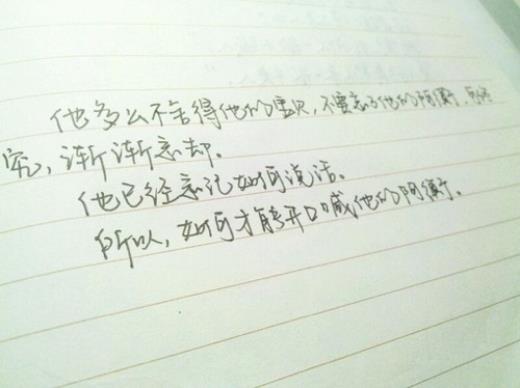 他多么不舍得他的意识,不要忘了他的阿衡,
究,渐渐忘却.
他已经忘记如何说话.
所以,如何才能开口喊他的阿衡.